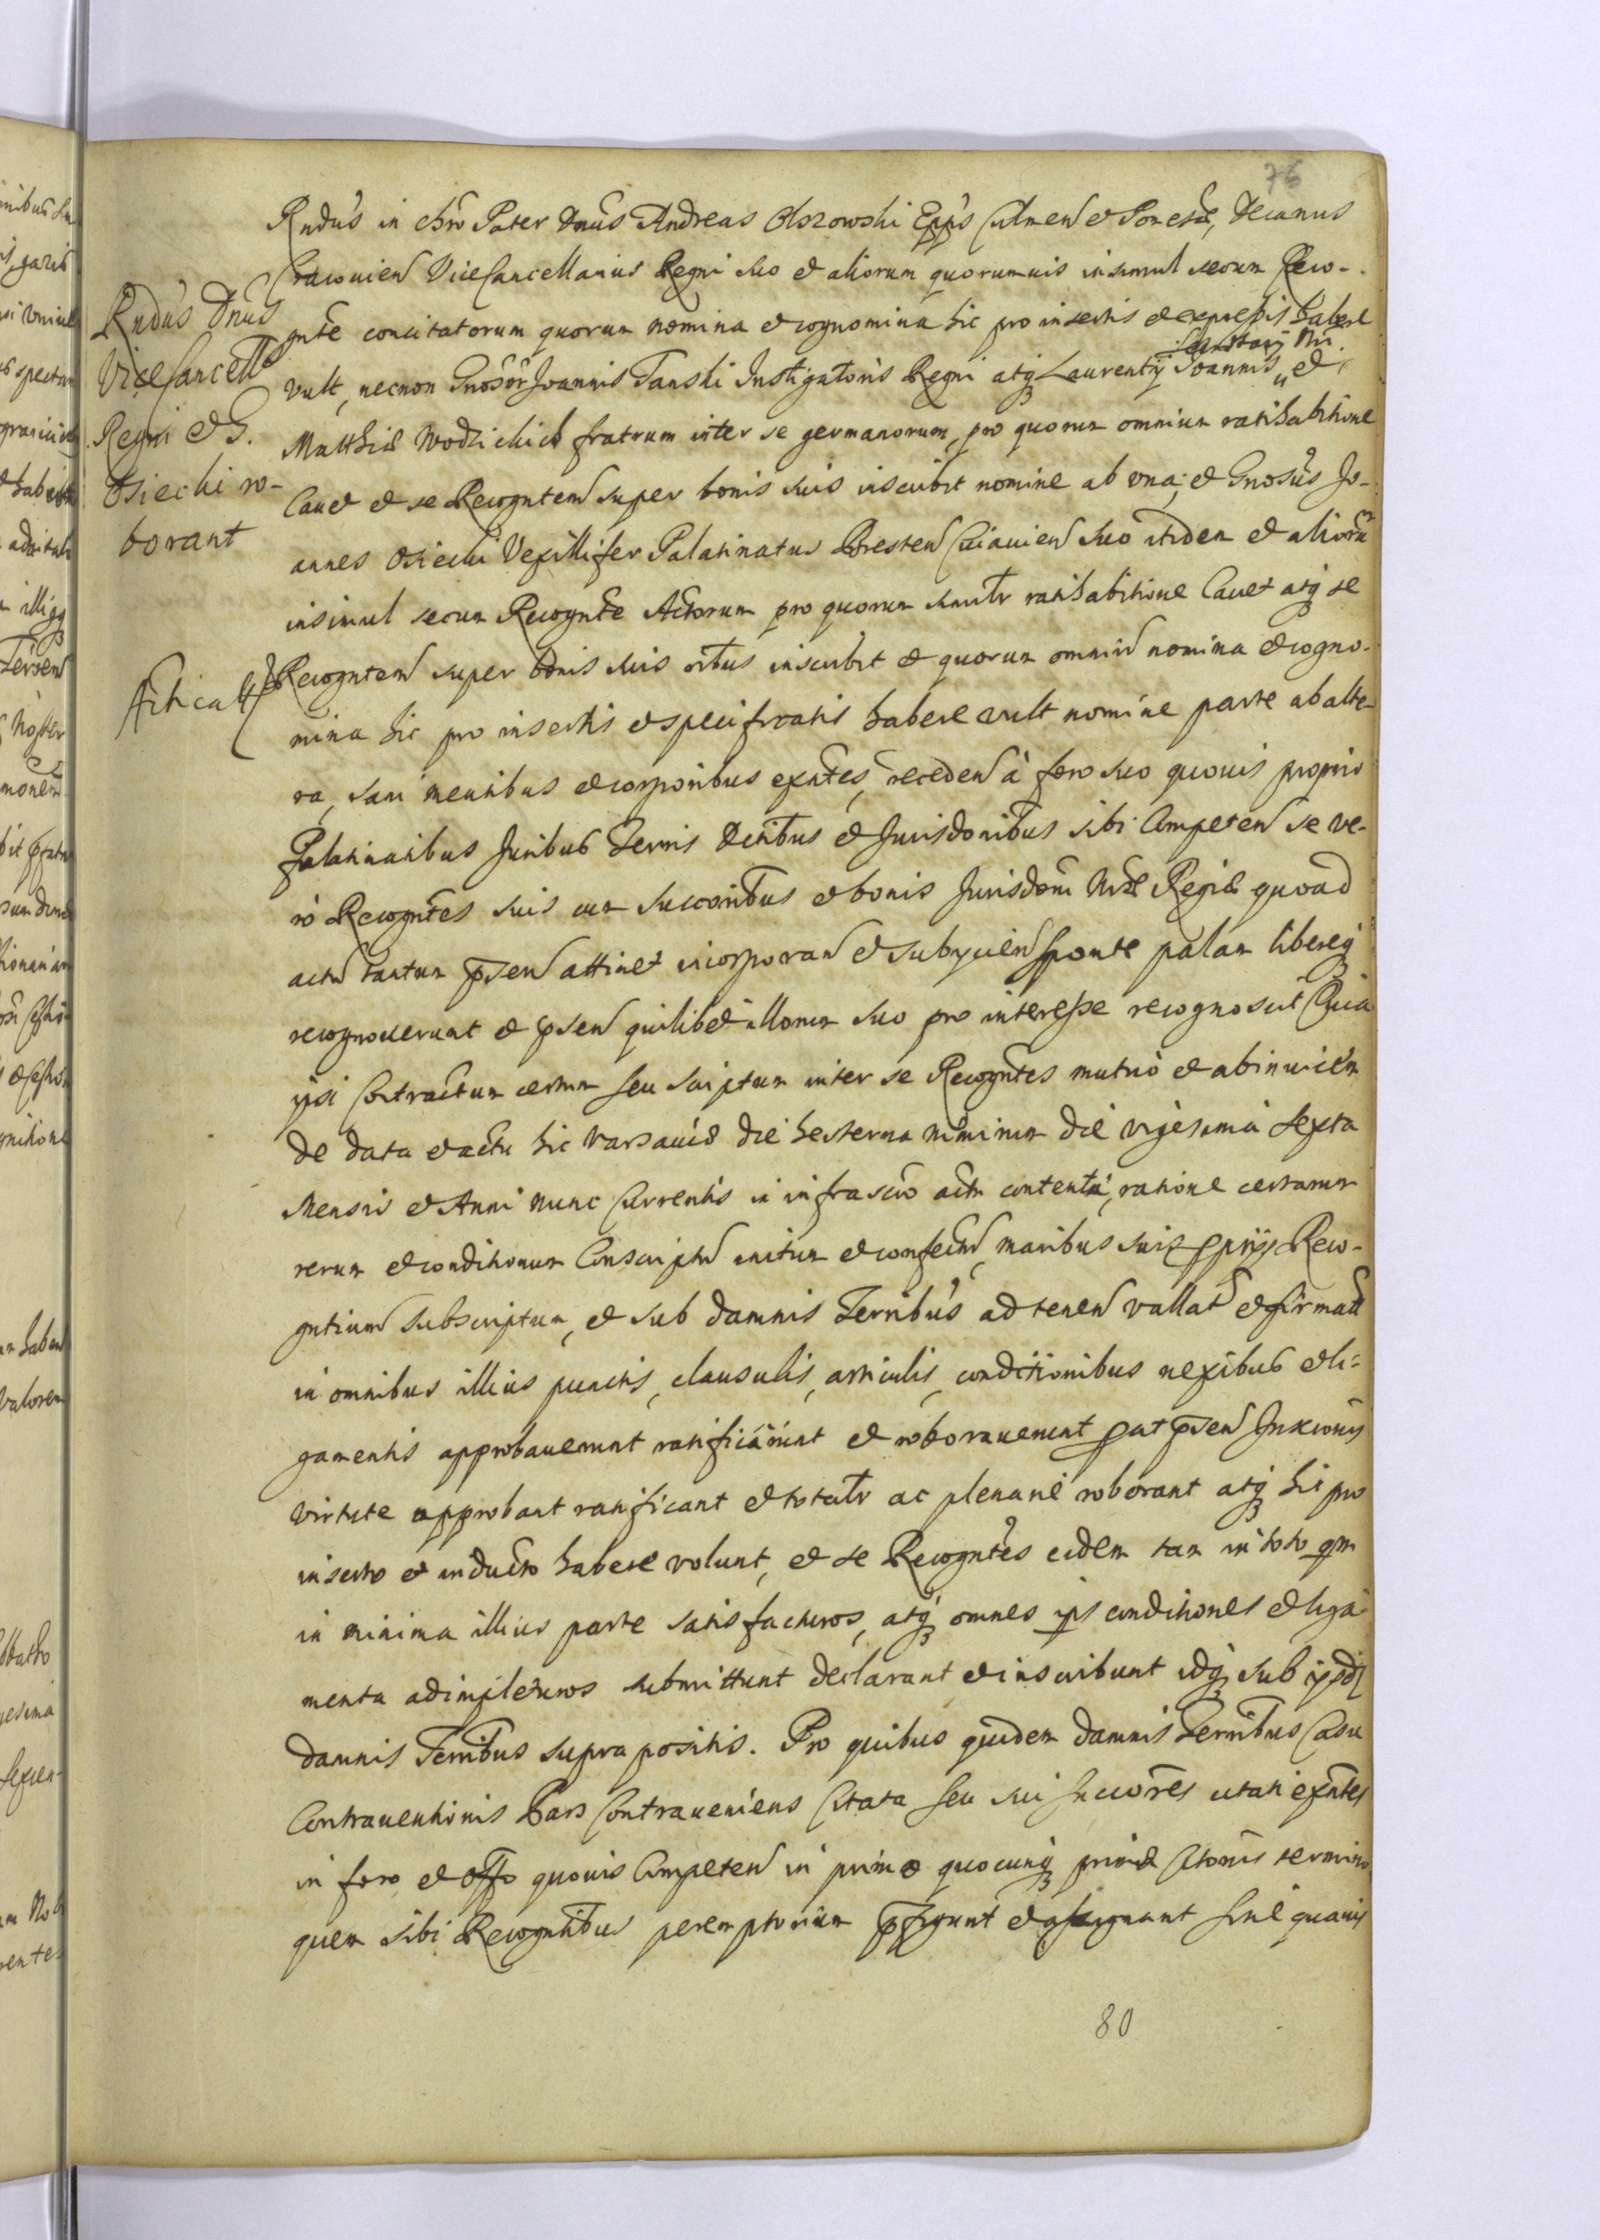 76
Rndus in Chro Pater Dnus Andreas Olszowski Eppus Culmen et Pomesae, Decanus
Cracouien ViceCancellarius Regni suo et aliorum quorumuis insimul secum Reco-
gnte concitatorum quorum nomina et cognomina hic pro insertis et expressis habere
vult, necnon Gnosor Joannis Tanski Instigatoris Regni atq Laurentij Joannis et
Matthiae Wodzickich fratrum inter se germanorum, pro quorum omnium ratihabitione
Cauet et se Recogntem super bonis suis inscribit nomine ab vna; et Gnosus Jo-
annes Osiecki Vexillifer Palatinatus Bresten Cuiauien suo itidem et aliorum
insimul secum Recognte Actorum pro quorum simltr ratihabitione Cauet atq se
Recogntem super bonis suis oibus inscribit et quorum omnium nomina et cogno-
mina hic pro insertis et specificatis habere vult nomine parte ab alte-
ra, sani mentibus et corporibus exntes, receden à foro suo quouis proprio
Palatinatibus Juribus Terris Dcitibus et Jurisdonibus sibi Competen se ve-
rò Recogntes suis cum succoribus et bonis Jurisdoni Nrae Regiae quoad
actum tantum psen attinet incorporan et subijcien sponte palam libereq
recognouerunt et psen quilibet illorum suo pro interesse recognoscit Quia
ipsi Contractum certum seu scriptum inter se Recogntes mutuò et abinuicem
de data et actu hic Varsauiae die hesterna nimirum die vigesima sexta
Mensis et Anni nunc Currentis in infrascro actu contenta, ratione certarum
rerum et conditionum Conscriptum initum et confectum, manibus suis pprijs Reco-
gntium subscriptum, et sub damnis Terribus ad tenen vallat et firmatt
in omnibus illius punctis, clausulis, articulis, conditionibus nexibus et li-
gamentis approbauerunt ratificarunt et roborauerunt put psen Inscrionis
virtute approbant ratificant et totaltr ac plenarie roborant atq hic pro
inserto et inducto habere volunt, et se Recogntes eidem tam in toto qm
in minima illius parte satisfacturos, atq omnes ips conditiones et liga
menta adimpleturos submittunt declarant et inscribunt idq sub ipsdz
damnis Terribus supra positis. Pro quibus quidem damnis Terribus Casu
Contrauentionis Pars Contraueniens Citata seu sui succores citati exntes
in foro et offo quouis Competen in primo quocunq primae Citonis termino
quem sibi Recogntibus peremptorium pfigunt et assignant sine quauis
Rndus Dnus
ViceCancell
Regni et G.
Osiecki ro-
borant
80